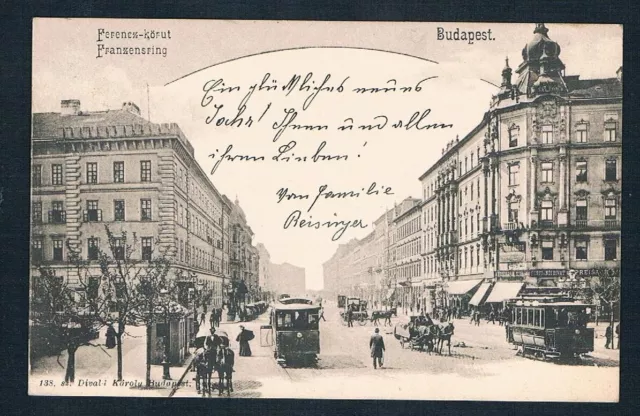 Ferencz-körut
Franzensring
Budapest.
Ein glückliches neues
Jahr! Ihnen und allen
ihren Lieben!
Von Familie
Reisinger
138. sz. Divald Károly Budapest.